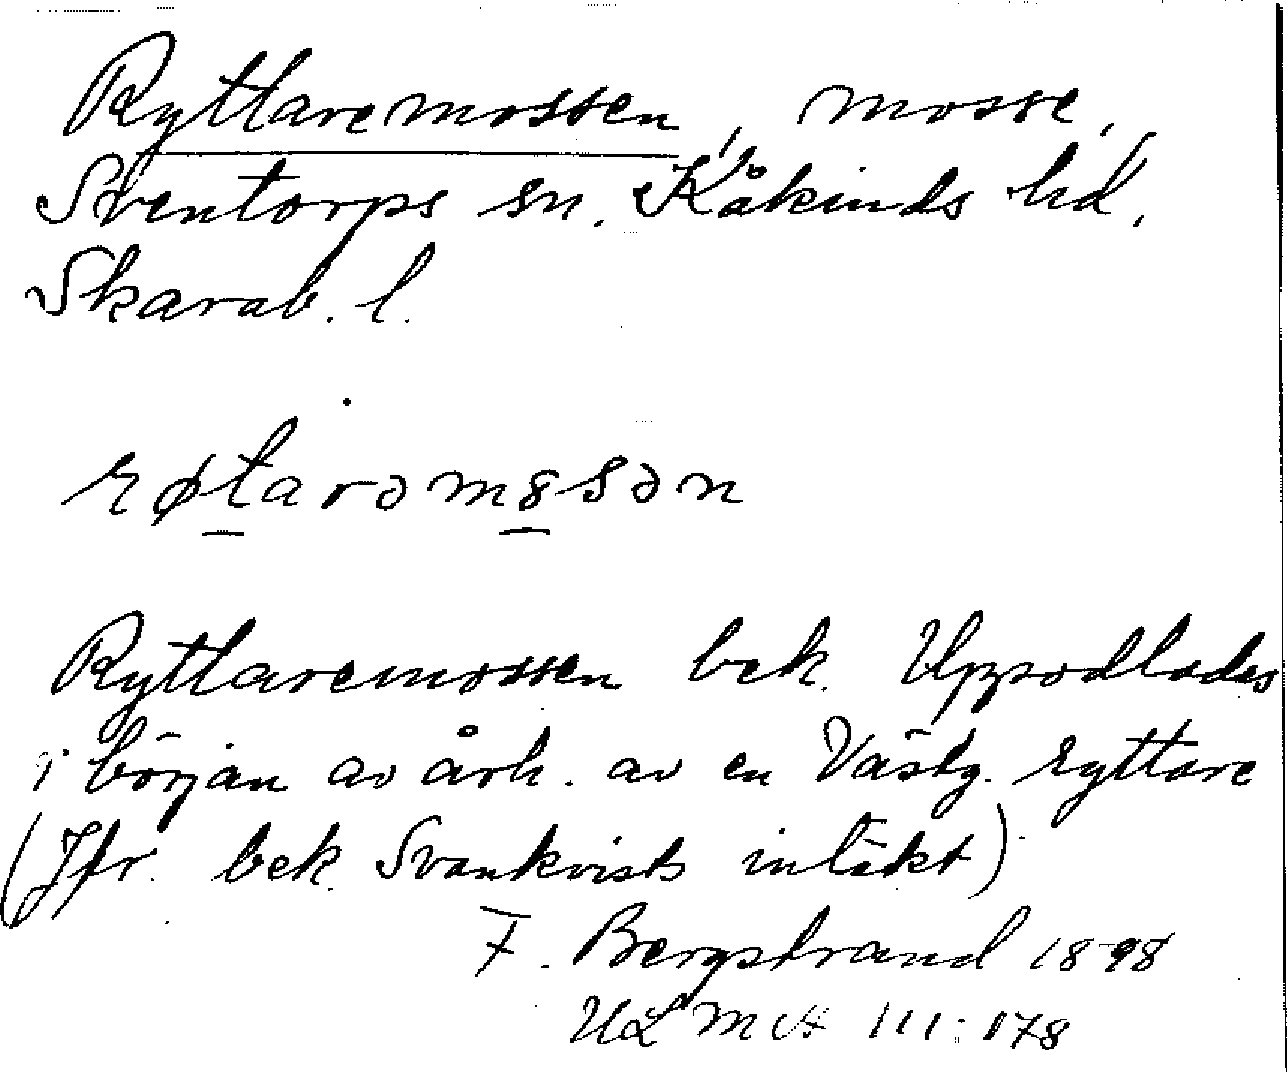 Ryttaremossen, mosse,
Sventorps sn. Kåkinds hd,
Skarab. l.
røtarəmɞsən
Ryttaremossen bek. Uppodlades
i början av årh. av en Västg. ryttare
(Jfr. bek. Svankvists intäkt)
F. Bergstrand 1898
ULMA 111:178